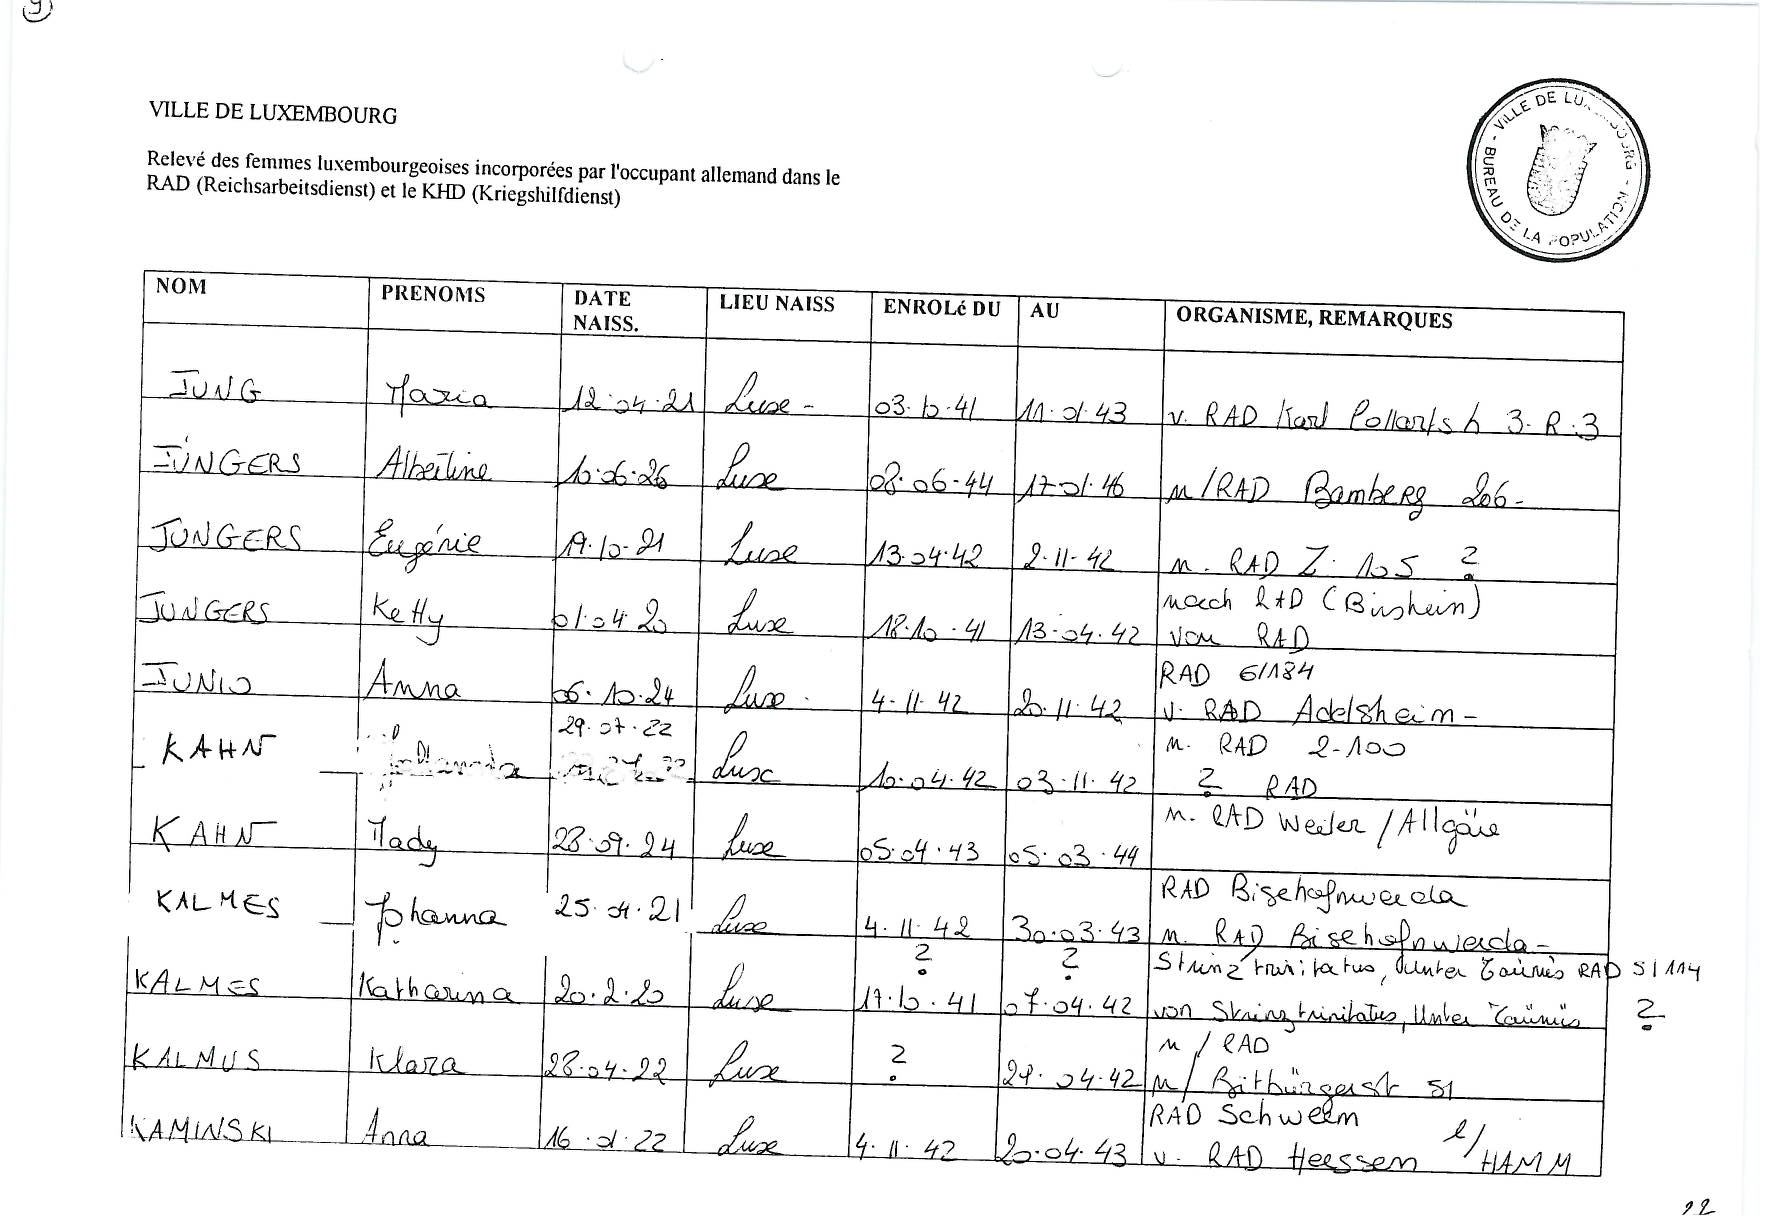 9
VILLE DE LUXEMBOURG
Relevé des femmes luxembourgeoises incorporées par l'occupant allemand dans le
RAD (Reichsarbeitsdienst) et le KHD (Kriegshilfdienst)
- VILLE DE LUXEMBOURG - BUREAU DE LA POPULATION
NOM PRENOMS DATE NAISS. LIEU NAISS ENROLé DU AU ORGANISME, REMARQUES
JUNG Maria 12.04.21 Luxe - 03.10.41 11.01.43 v. RAD Karl 3. R. 3
JÜNGERS Albertine 10.06.26 Luxe 08.06.44 17.01.46 n/RAD Bamberg 206-
JUNGERS Eugénie 19.10.21 Luxe 13.04.42 2.11.42 n. RAD Z. 105 ?
nach RAD (Birshein)
JUNGERS Ketty 01.04.20 Luxe 18.10.41 13.04.42 von RAD
RAD 6/184
JUNIO Anna 06.10.24 Luxe. 4.11.42 20.11.42 v. RAD Adelsheim-
29.07.22 n. RAD 2-100
KAHN Luxe 10.04.42 03.11.42 ? RAD
n. RAD Weiler/Allgäu
KAHN Mady 28.09.24 Luxe 05.04.43 05.03.44
RAD Bischofnwerda
KALMES Johanna 25.01.21 Luxe 4.11.42 30.03.43 n. RAD Bischofnwerda-
? ? Strinztrinitatus, Unter Taünüs RAD 5/114
KALMES Katharina 20.2.20 Luxe 17.10.41 07.04.42 von Strinztrinitatus, Unter Taünüs ?
n/RAD
KALMUS Klara 28.04.22 Luxe ? 29.04.42 n/ Bitbürgerstr 51
RAD Schwelm
KAMINSKI Anna 16.01.22 Luxe 4.11.42 20.04.43 v. RAD Heessen l/HAMM
22